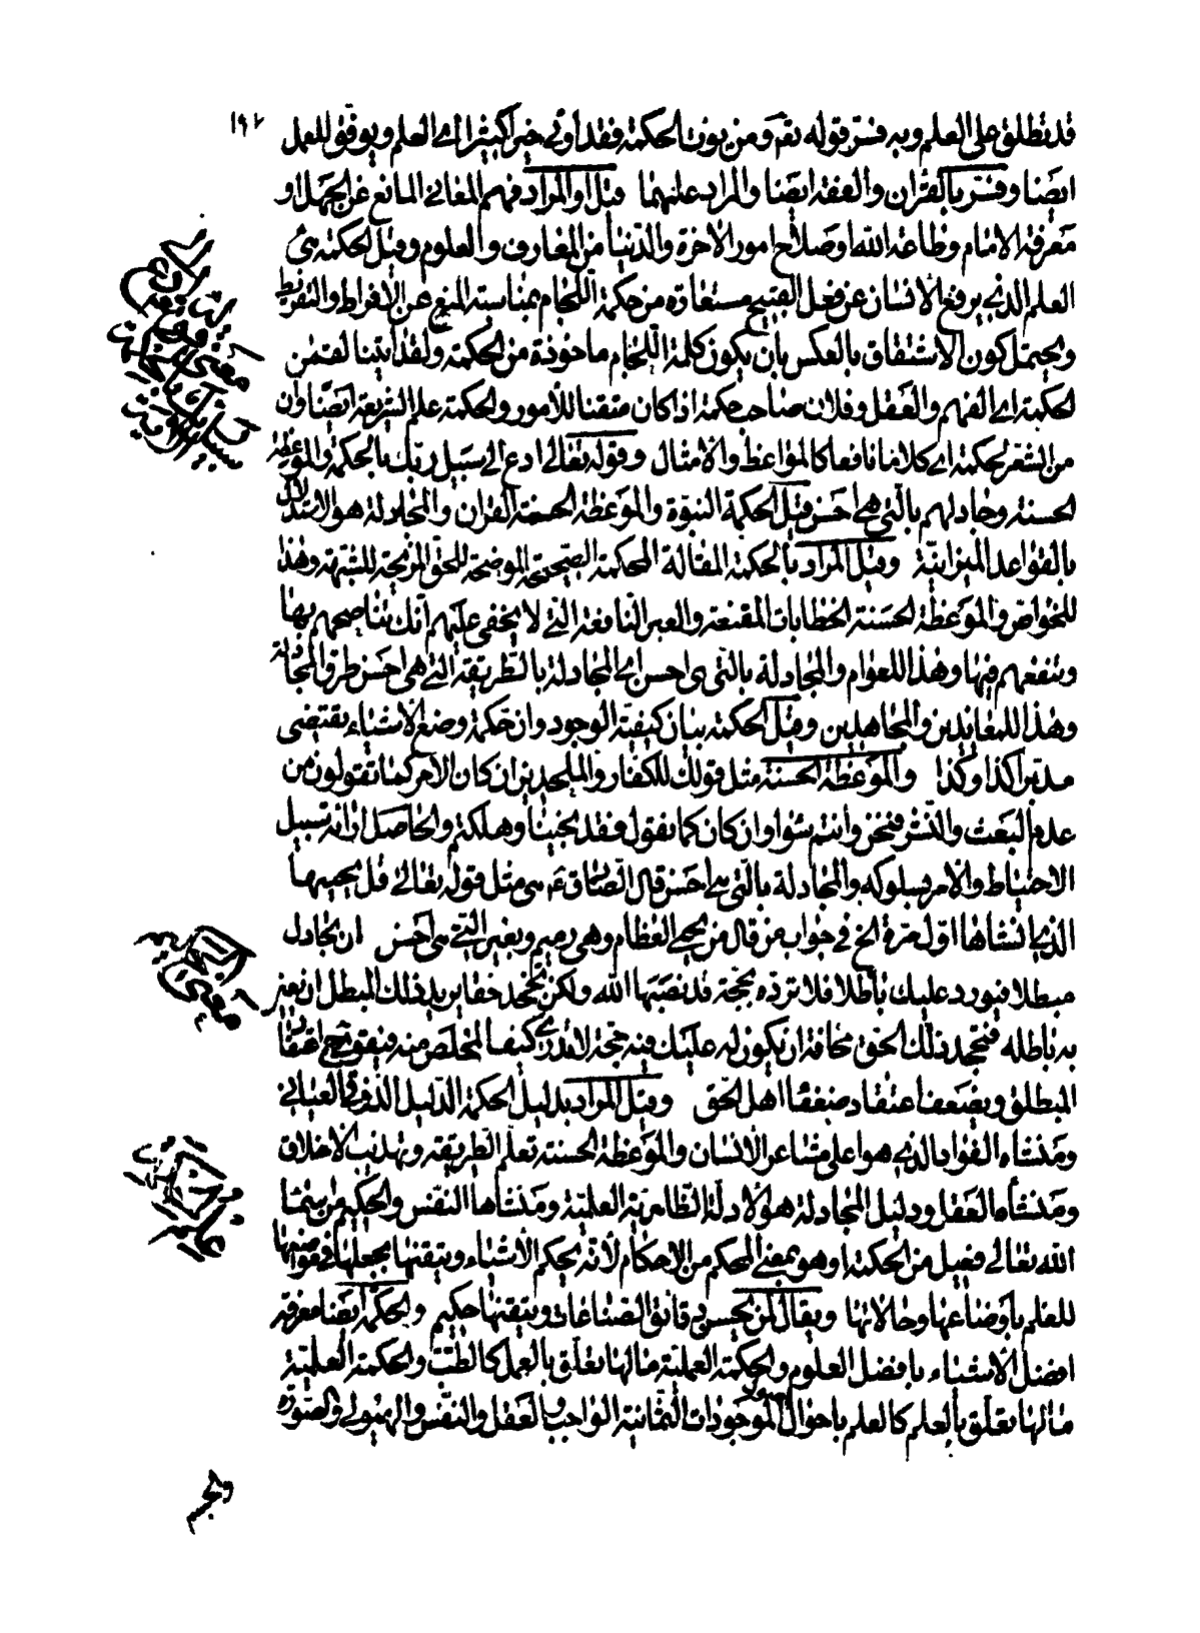 ١٩٢
قد تطلق على العلم وبه فسر قوله تع ومن يؤت الحكمة فقد اوتي خيرا كثيرا اي العلم ويوفق للعمل
ايضا وفسر بالقران والفقه ايضا والمراد علمهما وقيل او المراد فهم المعاني المانع عن الجهل او
معرفة الامام وطاعة الله او صلاح امور الاخرة والدنيا من المعارف والعلوم وقيل الحكمة هي
العلم الذي يرفع الانسان عن فعل القبيح مستعارة من حكمة اللجام بمناسبة المنع عن الافراط والتفريط
ويحتمل كون الاشتقاق بالعكس بان يكون كلمة اللجام ماخوذة من الحكمة ولقد اتينا لقمن
الحكمة اي الفهم والعقل وفلان صاحب حكمة اذا كان متقنا للأمور والحكمة علم الشريعة ايضا وان
من الشعر لحكمة اي كلاما نافعا كالمواعظ والامثال وقوله تعالى ادع الى سبيل ربك بالحكمة والموعظة
الحسنة وجادلهم بالتي هي احسن قيل الحكمة النبوة والموعظة الحسنة القران والمجادلة هو الاستدلال
بالقواعد الميزانية وقيل المراد بالحكمة المقالة المحكمة الصحيحة الموضحة للحق المزيحة للشبهة وهذا
للخواص والموعظة الحسنة الخطابات المقنعة والعبر النافعة التي لا يخفى عليهم انك تناصحهم بها
وتنفعهم فيها وهذا للعوام والمجادلة بالتي هي احسن اي المجادلة بالطريقة التي هي احسن طرق المجادلة
وهذا للمعاندين والمجاهدين وقيل الحكمة بيان كيفية الوجود وان حكمة وضع الاشياء يقتضي
مدبرا كذا وكذا والموعظة الحسنة مثل قولك للكفار والملحدين ان كان الامر كما تقولون من
عدم البعث والنشر فنحن وانتم سواء وان كان كما نقول فقد نجينا وهلكتم والحاصل ارائة سبيل
الاحتياط والامر بسلوكه والمجادلة بالتي هي احسن قال الصادق ع هي مثل قوله تعالى قل يحييها
الذي انشاها اول مرة الخ في جواب من قال من يحيي العظام وهي رميم وبغير التي هي احسن ان تجادل
مبطلا فيورد عليك باطلا فلا ترده بحجة قد نصبها الله ولكن تجحد حقا يريد ذلك المبطل ان يعين
به باطله فتجحد ذلك الحق مخافة ان يكون له عليك فيه حجة لا تدري كيف المخلص منه فيقوى ح اعتقاد
المبطل ويضعف اعتقاد ضعفاء اهل الحق وقيل المراد بدليل الحكمة الدليل الذوقي العياني
ومنشاه الفؤاد الذي هو اعلى مشاعر الانسان والموعظة الحسنة تعلم الطريقة وتهذيب الاخلاق
ومنشأه العقل ودليل المجادلة هو الادلة الظاهرية العلمية ومنشأها النفس والحكيم من اسماء
الله تعالى فعيل من الحكمة او هو بمعنى المحكم من الاحكام لأنه يحكم الأشياء ويتقنها بجعلها في مواضعها
للعلم بأوضاعها وحالاتها ويقال لمن يحسن دقائق الصناعات ويتقنها حكيم والحكمة ايضا معرفة
افضل الاشياء بافضل العلوم والحكمة العملية ما لها تعلق بالعمل كالطب والحكمة العلمية
ما لها تعلق بالعلم كالعلم باحوال اصول الموجودات الثمانية الواجب والعقل والنفس والهيولى والصورة
والجسم